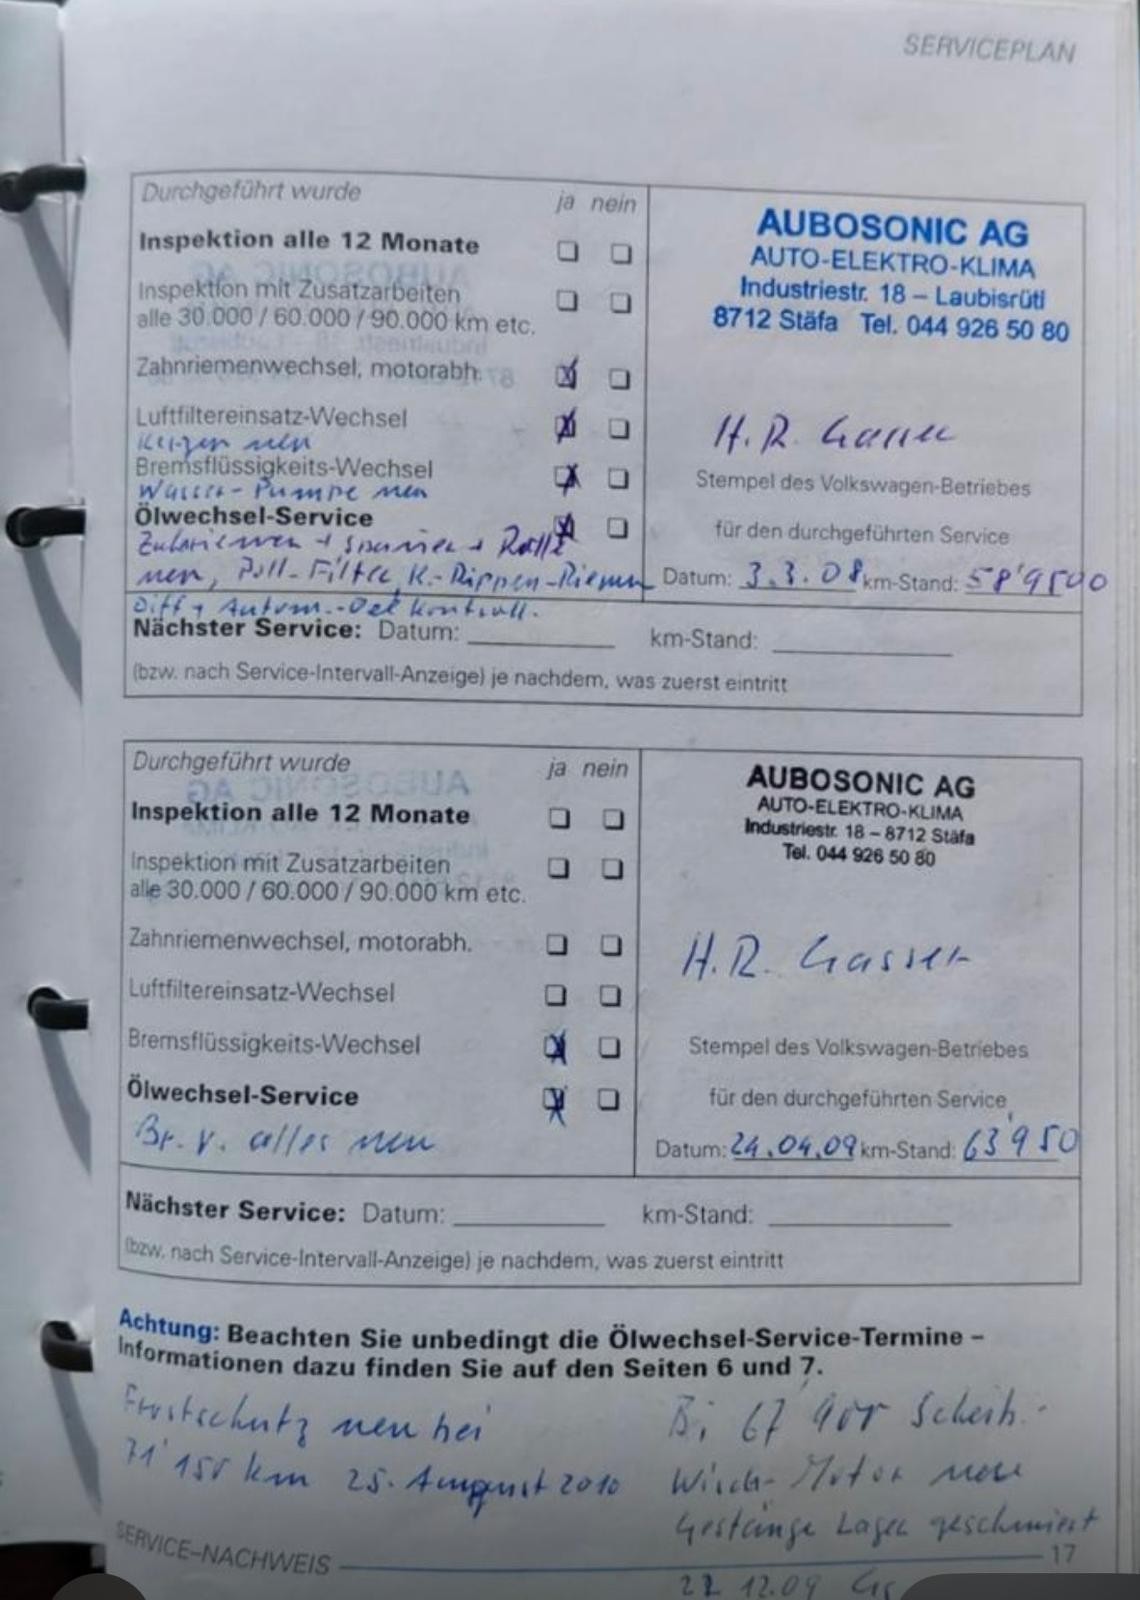 SERVICEPLAN
Durchgeführt wurde ja nein
Inspektion alle 12 Monate
Inspektion mit Zusatzarbeiten
alle 30.000 / 60.000 / 90.000 km etc.
Zahnriemenwechsel, motorabh.
Luftfiltereinsatz-Wechsel
Kerzen neu
Bremsflüssigkeits-Wechsel
Wasser-Pumpe neu
Ölwechsel-Service
+ Spanner + Rolle
neu, Poll-Filter, K.-Rippen-Riemen
Diff + Autom.-Oel kontroll.
AUBOSONIC AG
AUTO-ELEKTRO-KLIMA
Industriestr. 18 – Laubisrüti
8712 Stäfa Tel. 044 926 50 80
H.R. Gasser
Stempel des Volkswagen-Betriebes
für den durchgeführten Service
Datum: 3.3.08 km-Stand:
Nächster Service: Datum: km-Stand:
(bzw. nach Service-Intervall-Anzeige) je nachdem, was zuerst eintritt
Durchgeführt wurde ja nein
Inspektion alle 12 Monate
Inspektion mit Zusatzarbeiten
alle 30.000 / 60.000 / 90.000 km etc.
Zahnriemenwechsel, motorabh.
Luftfiltereinsatz-Wechsel
Bremsflüssigkeits-Wechsel
Ölwechsel-Service
Br. v. alles neu
AUBOSONIC AG
AUTO-ELEKTRO-KLIMA
Industriestr. 18 – 8712 Stäfa
Tel. 044 926 50 80
H.R. Gasser
Stempel des Volkswagen-Betriebes
für den durchgeführten Service
Datum: 24.04.09 km-Stand: 63'950
Nächster Service: Datum: km-Stand:
(bzw. nach Service-Intervall-Anzeige) je nachdem, was zuerst eintritt
Achtung: Beachten Sie unbedingt die Ölwechsel-Service-Termine –
Informationen dazu finden Sie auf den Seiten 6 und 7.
Frostschutz neu bei
71'150 km 25. August 2010
Bi 67'900 Scheib.-
Wisch-Motor neu
Gestänge Lager geschmiert
12.09
SERVICE–NACHWEIS
17